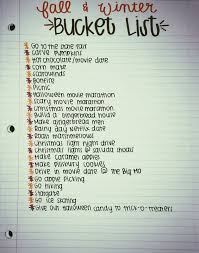 fall & winter
BUCKET LIST
GO TO THE fair
CARVE PUMPKINS
HOT CHOCOLATE/MOVIE DATE
CORN MAZE
SCAROWINDS
BONFIRE
PICNIC
HALLOWEEN MOVIE MARATHON
SCARY MOVIE MARATHON
CHRISTMAS MOVIE MARATHON
BUILD A GINGERBREAD HOUSE
MAKE GINGERBREAD MEN
RAINY DAY NETFLIX DATE
ROAST MARSHMALLOWS
CHRISTMAS LIGHT NIGHT DRIVE
CHRISTMAS LIGHTS @ SALUDA SHOALS
MAKE CARAMEL APPLES
MAKE PUMPKIN COOKIES
DRIVE IN MOVIE DATE @ THE BIG MO
GO APPLE PICKING
GO HIKING
STARGAZE
GO ICE SKATING
GIVE OUT HALLOWEEN CANDY TO TRICK-O-TREATERS